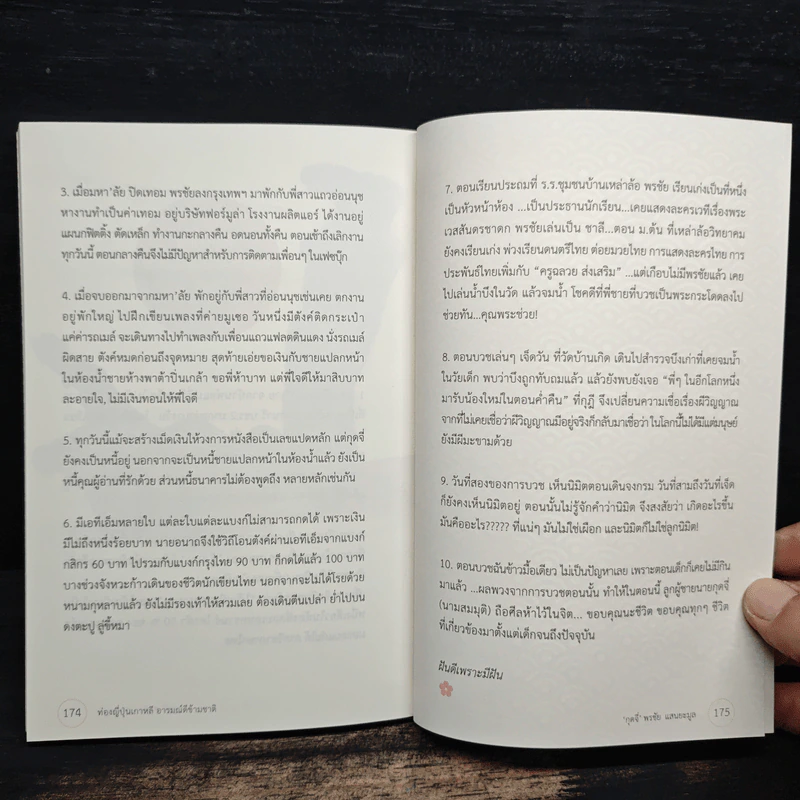 3. เมื่อมหา'ลัย ปิดเทอม พรชัยลงกรุงเทพฯ มาพักกับพี่สาวแถวอ่อนนุช
หางานทำเป็นค่าเทอม อยู่บริษัทฟอร์มูล่า โรงงานผลิตแอร์ ได้งานอยู่
แผนกฟิตติ้ง ตัดเหล็ก ทำงานกะกลางคืน อดนอนทั้งคืน ตอนเช้าถึงเลิกงาน
ทุกวันนี้ ตอนกลางคืนจึงไม่มีปัญหาสำหรับการติดตามเพื่อนๆ ในเฟซบุ๊ก
4. เมื่อจบออกมาจากมหา'ลัย พักอยู่กับพี่สาวที่อ่อนนุชเช่นเคย ตกงาน
อยู่พักใหญ่ ไปฝึกเขียนเพลงที่ค่ายมูเซอ วันหนึ่งมีตังค์ติดกระเป๋า
แค่ค่ารถเมล์ จะเดินทางไปทำเพลงกับเพื่อนแถวแฟลตดินแดง นั่งรถเมล์
ผิดสาย ตังค์หมดก่อนถึงจุดหมาย สุดท้ายเอ่ยขอเงินกับชายแปลกหน้า
ในห้องน้ำชายห้างพาต้าปิ่นเกล้า ขอพี่ห้าบาท แต่พี่ใจดีให้มาสิบบาท
ละอายใจ, ไม่มีเงินทอนให้พี่ใจดี
5. ทุกวันนี้แม้จะสร้างเม็ดเงินให้วงการหนังสือเป็นเลขแปดหลัก แต่กุดจี่
ยังคงเป็นหนี้อยู่ นอกจากจะเป็นหนี้ชายแปลกหน้าในห้องน้ำแล้ว ยังเป็น
หนี้คุณผู้อ่านที่รักด้วย ส่วนหนี้ธนาคารไม่ต้องพูดถึง หลายหลักเช่นกัน
6. มีเอทีเอ็มหลายใบ แต่ละใบแต่ละแบงก์ไม่สามารถกดได้ เพราะเงิน
มีไม่ถึงหนึ่งร้อยบาท นายอนาถจึงใช้วิถีโอนตังค์ผ่านเอทีเอ็มจากแบงก์
กสิกร 60 บาท ไปรวมกับแบงก์กรุงไทย 90 บาท ก็กดได้แล้ว 100 บาท
บางช่วงจังหวะก้าวเดินของชีวิตนักเขียนไทย นอกจากจะไม่ได้โรยด้วย
หนามกุหลาบแล้ว ยังไม่มีรองเท้าให้สวมเลย ต้องเดินตีนเปล่า ย่ำไปบน
ดงตะปู ลู่ขี้หมา
174 ท่องญี่ปุ่นเกาหลี อารมณ์ดีข้ามชาติ
7. ตอนเรียนประถมที่ ร.ร.ชุมชนบ้านเหล่าล้อ พรชัย เรียนเก่งเป็นที่หนึ่ง
เป็นหัวหน้าห้อง ...เป็นประธานนักเรียน...เคยแสดงละครเวทีเรื่องพระ
เวสสันดรชาดก พรชัยเล่นเป็น ชาลี...ตอน ม.ต้น ที่เหล่าล้อวิทยาคม
ยังคงเรียนเก่ง พ่วงเรียนดนตรีไทย ต่อยมวยไทย การแสดงละครไทย การ
ประพันธ์ไทยเพิ่มกับ "ครูฉลวย ส่งเสริม" ...แต่เกือบไม่มีพรชัยแล้ว เคย
ไปเล่นน้ำบึงในวัด แล้วจมน้ำ โชคดีที่พี่ชายที่บวชเป็นพระกระโดดลงไป
ช่วยทัน...คุณพระช่วย!
8. ตอนบวชเล่นๆ เจ็ดวัน ที่วัดบ้านเกิด เดินไปสำรวจบึงเก่าที่เคยจมน้ำ
ในวัยเด็ก พบว่าบึงถูกทับถมแล้ว แล้วยังพบยังเจอ "พี่ๆ ในอีกโลกหนึ่ง
มารับน้องใหม่ในตอนค่ำคืน" ที่กุฏิ จึงเปลี่ยนความเชื่อเรื่องผีวิญญาณ
จากที่ไม่เคยเชื่อว่าผีวิญญาณมีอยู่จริงก็กลับมาเชื่อว่า ในโลกนี้ไม่ได้มีแต่มนุษย์
ยังมีผีมะขามด้วย
9. วันที่สองของการบวช เห็นนิมิตตอนเดินจงกรม วันที่สามถึงวันที่เจ็ด
ก็ยังคงเห็นนิมิตอยู่ ตอนนั้นไม่รู้จักคำว่านิมิต จึงสงสัยว่า เกิดอะไรขึ้น
มันคืออะไร????? ที่แน่ๆ มันไม่ใช่เผือก และนิมิตก็ไม่ใช่ลูกนิมิต!
10. ตอนบวชฉันข้าวมื้อเดียว ไม่เป็นปัญหาเลย เพราะตอนเด็กก็เคยไม่มีกิน
มาแล้ว ...ผลพวงจากการบวชตอนนั้น ทำให้ในตอนนี้ ลูกผู้ชายนายกุดจี่
(นามสมมุติ) ถือศีลห้าไว้ในจิต... ขอบคุณนะชีวิต ขอบคุณทุกๆ ชีวิต
ที่เกี่ยวข้องมาตั้งแต่เด็กจนถึงปัจจุบัน
ฝันดีเพราะมีฝัน
'กุดจี่' พรชัย แสนยะมูล 175